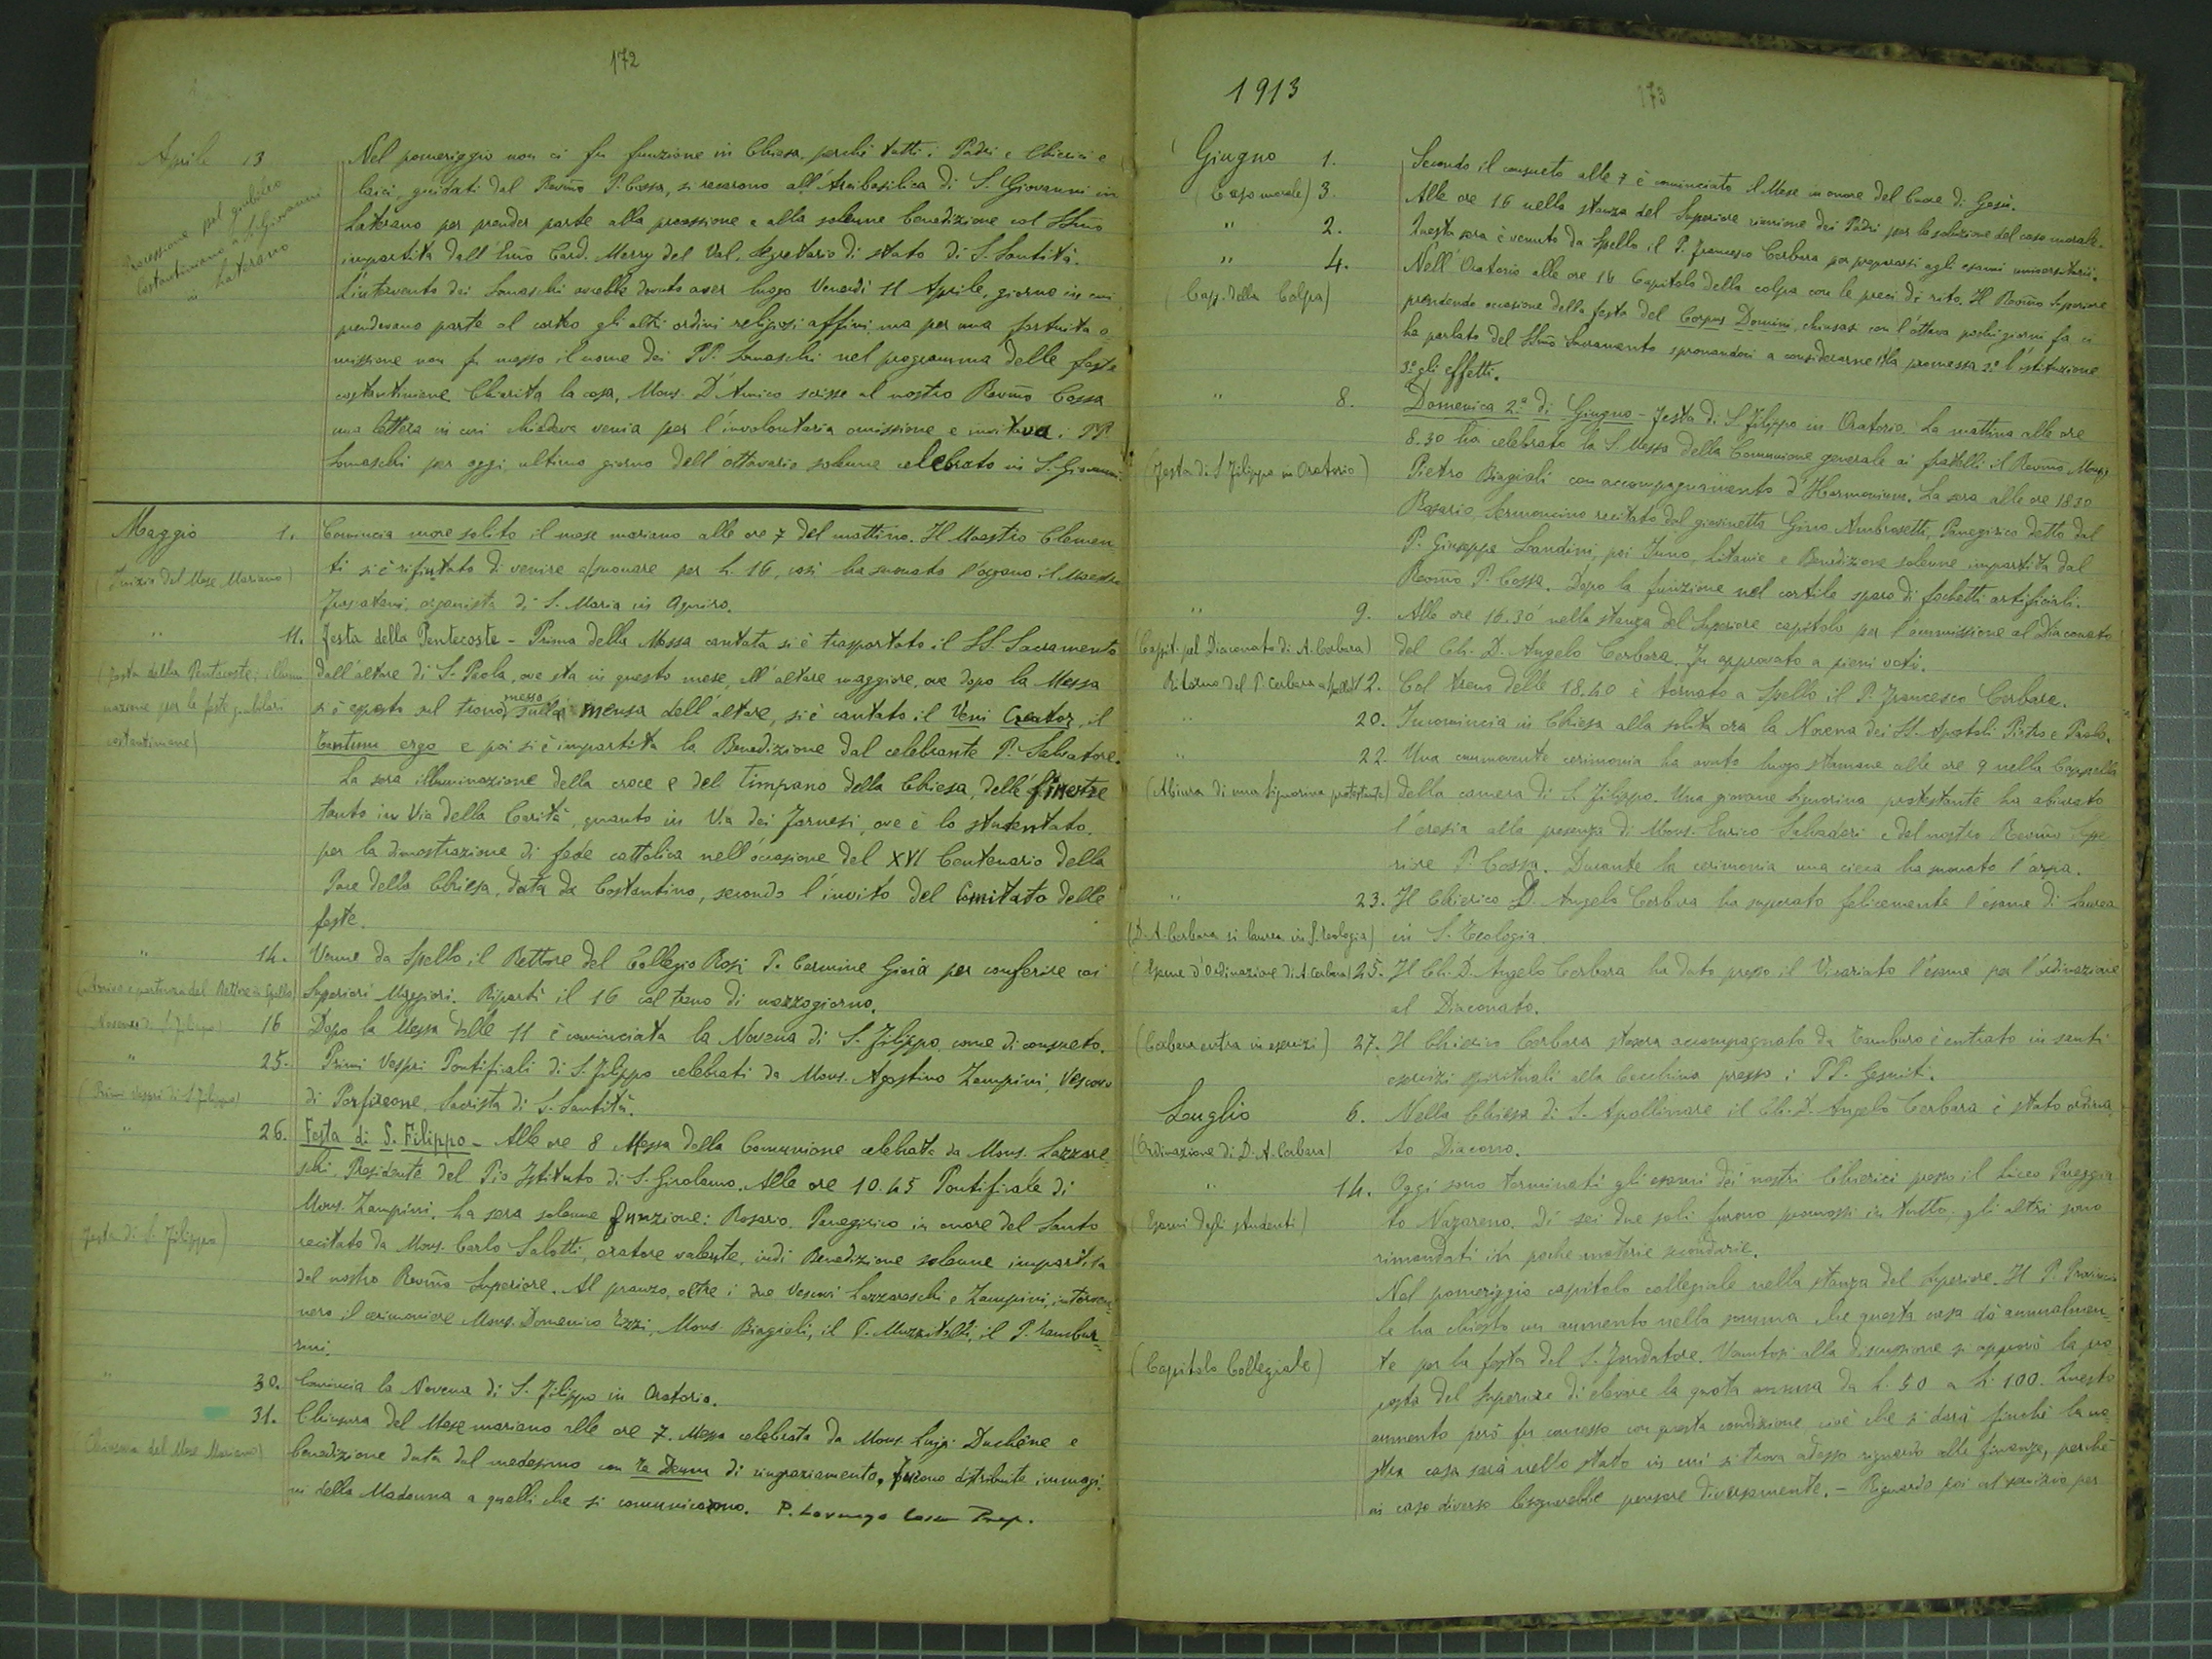 172
Aprile 13
Processione pel giubileo
Costantiniano a S. Giovanni
in Laterano
Nel pomeriggio non ci fu funzione in Chiesa, perchè tutti i Padri e Chierici e
laici, guidati dal Revm̃o P. Cossa, si recarono all'Arcibasilica di S. Giovanni in
Laterano per prender parte alla processione e alla solenne benedizione col SSm̃o
impartita dall'Em̃o Card. Merry del Val, Segretario di stato di S. Santità.
L'intervento dei Somaschi avrebbe dovuto aver luogo Venerdì 11 Aprile, giorno in cui
prendevano parte al corteo gli altri ordini religiosi affini, ma per una fortuita o-
missione non fu messo il nome dei PP. Somaschi nel programma delle feste
costantiniane. Chiarita la cosa, Mons. D'Amico scrisse al nostro Revm̃o Cossa
una lettera in cui chiedeva venia per l'involontaria omissione e invitava i PP.
Somaschi per oggi, ultimo giorno dell'ottavario solenne celebrato in S. Giovanni.
Maggio 1. Comincia more solito il mese mariano alle ore 7 del mattino. Il Maestro Clemen
(Inizio del Mese Mariano) ti si è rifiutato di venire a suonare per L. 16, così ha suonato l'organo il Maestro
organista di S. Maria in Aquiro.
" 11. Festa della Pentecoste - Prima della Messa cantata si è trasportato il SS. Sacramento
(Festa della Pentecoste; illumi- dall'altare di S. Paola, ove sta in questo mese, all'altare maggiore, ove dopo la Messa
nazione per le feste giubilari si è esposto sul trono messo sulla mensa dell'altare, si è cantato il Veni Creator, il
costantiniane) Tantum ergo e poi si è impartita la Benedizione dal celebrante P. Salvatore.
La sera illuminazione della croce e del timpano della Chiesa, delle finestre
tanto in Via della Carità, quanto in Via dei Farnesi, ove è lo studentato,
per la dimostrazione di fede cattolica nell'occasione del XVI Centenario della
Pace della Chiesa, data da Costantino, secondo l'invito del Comitato delle
feste.
" 14. Venne da Spello il Rettore del Collegio Rosi P. Carmine Gioia per conferire coi
(Arrivo e partenza del Rettore di Spello) Superiori Maggiori. Ripartì il 16 col treno di mezzogiorno.
Novena di S. Filippo 16 Dopo la Messa delle 11 è cominciata la Novena di S. Filippo, come di consueto.
" 25. Primi Vespri Pontificali di S. Filippo celebrati da Mons. Agostino Zampini, Vescovo
(Primi vespri di S. Filippo) di Porfireone, Sacrista di S. Santità.
" 26. Festa di S. Filippo - Alle ore 8 Messa della Comunione celebrata da Mons. Lazzare-
schi, Presidente del Pio Istituto di S. Girolamo. Alle ore 10.45 Pontificale di
Mons. Zampini. La sera solenne funzione: Rosario, Panegirico in onore del Santo
Festa di S. Filippo) recitato da Mons. Carlo Salotti, oratore valente, indi Benedizione solenne impartita
dal nostro Revm̃o Superiore. Al pranzo, oltre i due Vescovi Lazzareschi e Zampini, interven-
nero il cerimoniere Mons. Domenico Rizzi, Mons. Biagioli, il P. Muzzitelli, il P. Tambur-
rini.
" 30. Comincia la Novena di S. Filippo in Oratorio.
31. Chiusura del Mese mariano alle ore 7. Messa celebrata da Mons. Luigi Duchêne e
(Chiusura del Mese Mariano) benedizione data dal medesimo con Te Deum di ringraziamento. Furono distribuite immagi-
ni della Madonna a quelli che si comunicarono. P. Lorenzo Cossa Prep.
1913
173
Giugno 1. Secondo il consueto alle 7 è cominciato il Mese in onore del Cuore di Gesù.
(Caso morale) 3. Alle ore 16 nella stanza del Superiore riunione dei Padri per la soluzione del caso morale.
" 2. Questa sera è venuto da Spello il P. Francesco Cerbara per prepararsi agli esami universitarii.
" 4. Nell'Oratorio alle ore 16 Capitolo della colpa con le preci di rito. Il Revm̃o Superiore
(Cap. della Colpa) prendendo occasione della festa del Corpus Domini, chiusasi con l'ottava pochi giorni fa, ci
ha parlato del SSm̃o Sacramento spronandoci a considerarne 1° la promessa 2° l'istituzione
3° gli effetti.
" 8. Domenica 2.a di Giugno - Festa di S. Filippo in Oratorio. La mattina alle ore
8.30 ha celebrato la S. Messa della Comunione generale ai fratelli il Revm̃o Mons.
(Festa di S. Filippo in Oratorio) Pietro Biagioli con accompagnamento d'Harmonium. La sera alle ore 18.30
Rosario, Sermoncino recitato dal giovinetto Gino Ambrosetti, Panegirico detto dal
P. Giuseppe Landini, poi Inno, Litanie e Benedizione solenne impartita dal
Revm̃o P. Cossa. Dopo la funzione nel cortile sparo di fochetti artificiali.
" 9. Alle ore 16.30 nella stanza del Superiore capitolo per l'ammissione al Diaconato
(Capit. pel Diaconato di A. Cerbara) del Ch. D. Angelo Cerbara. Fu approvato a pieni voti.
Ritorno del P. Cerbara a Spello 12. Col treno delle 18.40 è tornato a Spello il P. Francesco Cerbara.
" 20. Incomincia in Chiesa alla solita ora la Novena dei SS. Apostoli Pietro e Paolo.
" 22. Una commovente cerimonia ha avuto luogo stamane alle ore 9 nella Cappella
(Abiura di una Signorina protestante) della camera di S. Filippo. Una giovane signorina protestante ha abiurato
l'eresia alla presenza di Mons. Enrico Salvadori e del nostro Revm̃o Supe
riore P. Cossa. Durante la cerimonia una cieca ha suonato l'arpa.
" 23. Il Chierico D. Angelo Cerbara ha superato felicemente l'esame di Laurea
(D. A. Cerbara si laurea in S. Teologia) in S. Teologia.
(Esame d'Ordinazione di A. Cerbara) 25. Il Ch. D. Angelo Cerbara ha dato presso il Vicariato l'esame per l'ordinazione
al Diaconato.
(Cerbara entra in esercizi) 27. Il Chierico Cerbara stasera accompagnato da Tamburo è entrato in santi
esercizi spirituali alla Cecchina presso i PP. Gesuiti.
Luglio 6. Nella Chiesa di S. Apollinare il Ch. D. Angelo Cerbara è stato ordina
(Ordinazione di D. A. Cerbara) to Diacono.
" 14. Oggi sono terminati gli esami dei nostri Chierici presso il Liceo Pareggia
(Esami degli studenti) to Nazareno. Di sei due soli furono promossi in tutto: gli altri sono
rimandati in poche materie secondarie.
Nel pomeriggio capitolo collegiale nella stanza del Superiore. Il P. Provincia
le ha chiesto un aumento nella somma che questa casa dà annualmen-
(Capitolo Collegiale) te per la festa del S. Fondatore. Venutosi alla discussione si approvò la pro
posta del Superiore di elevare la quota annua da L. 50 a L. 100. Questo
aumento però fu concesso con questa condizione, cioè che si darà finchè la no-
stra casa sarà nello stato in cui si trova adesso riguardo alle finanze, perchè
in caso diverso bisognerebbe pensare diversamente. - Riguardo poi al servizio per